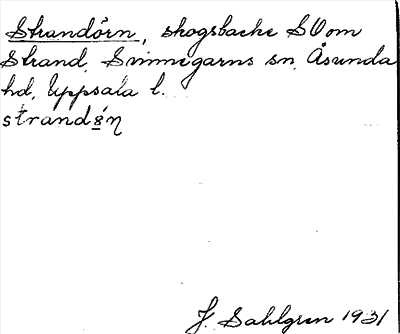 Strandörn, skogsbacke SV om
Strand, Svinnegarns sn, Åsunda
hd, Uppsala l.
strandǿ̱η
J. Sahlgren 1931